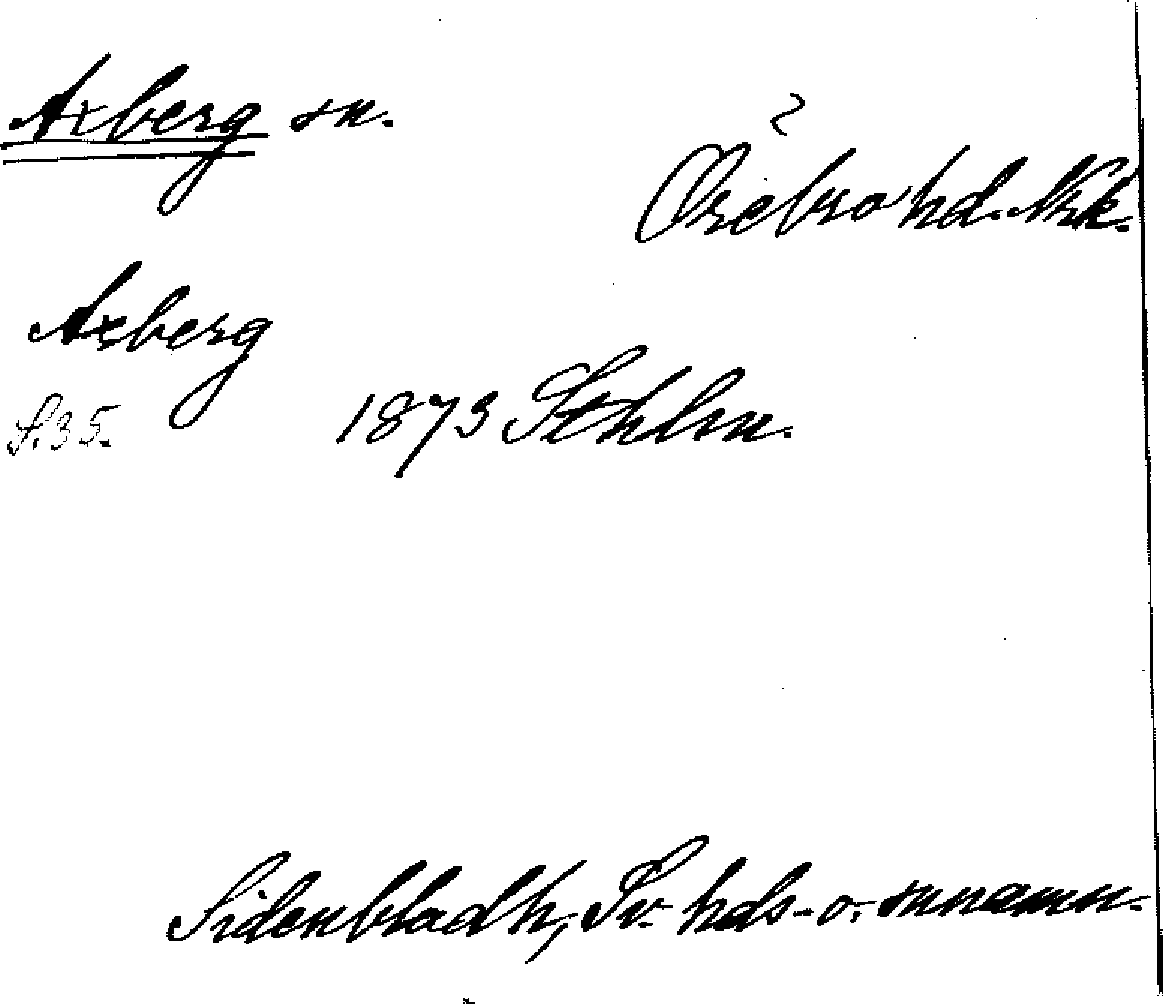 Axberg sn.
Örebro hd. Nrk.
Axberg
S. 35. 1873 Sthlm.
Sidenbladh, Sv. hds- o. snnamn.